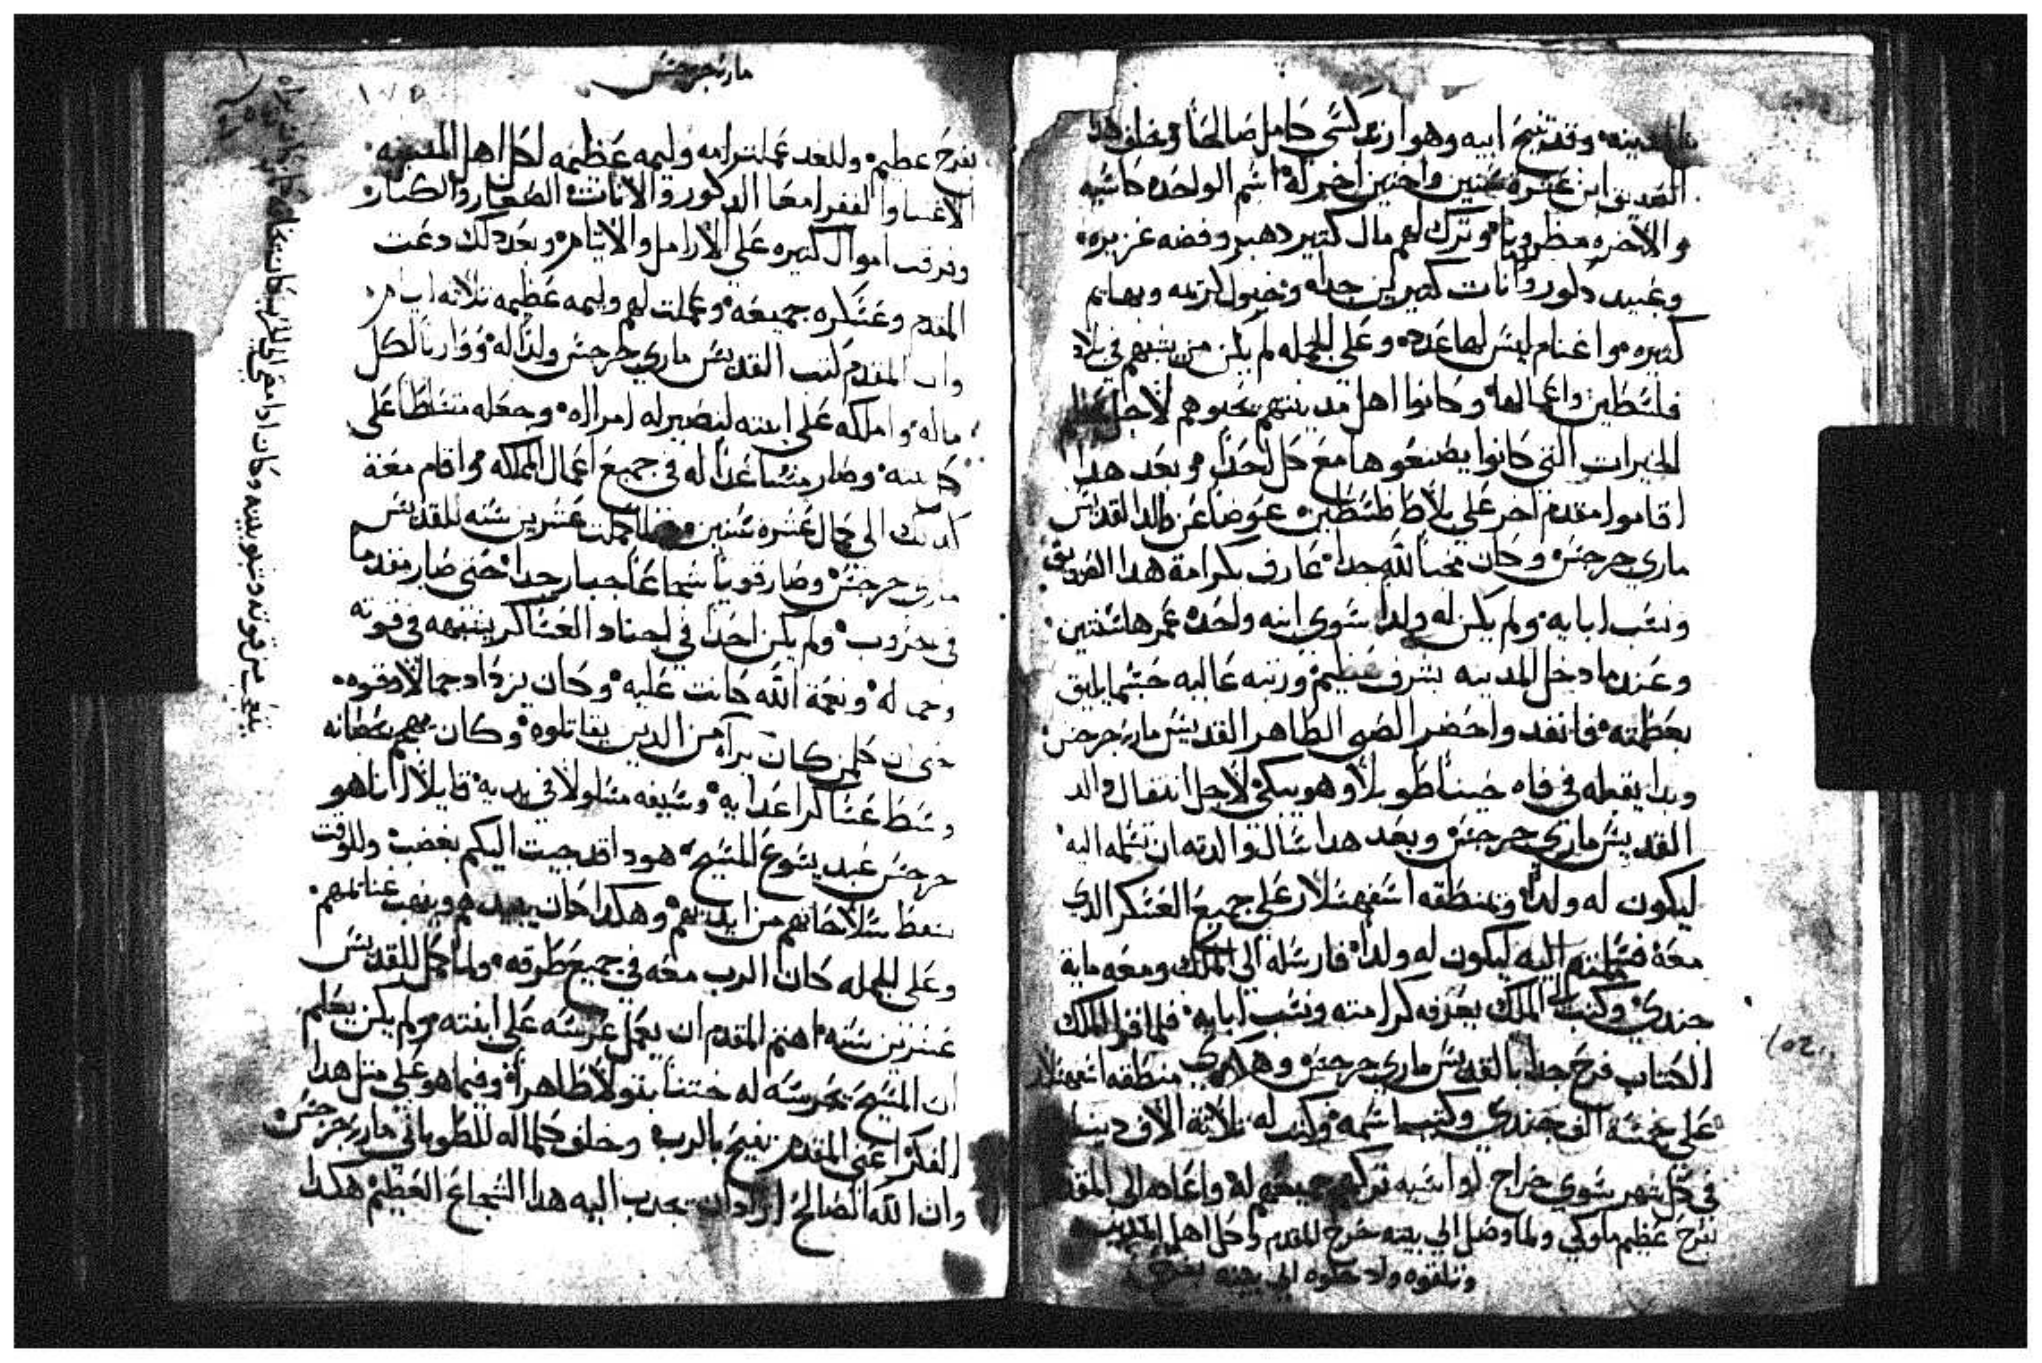 المدينه وقد تنيح ابيه وهو ارتدكسي كامل صالحا وخلف هدا
القديس ابن عشره سنين واختين اخر له اسم الواحده كاسيه
والاخره مطرونا وترك لهم مال كتير دهب وفضه غزيره
وعبيد دكور وانات كتيرين جدا وخيول كتيره وبهايم
كتيره واغنام ليس لها عدد وعلي الجمله لم يكن من يشبههم في بلاد
فلسطين واعمالها وكانوا اهل مدينتهم يحبوهم لاجل
الخيرات التي كانوا يصنعوها مع كل احد وبعد هدا
اقاموا مقدم اخر علي بلاط فلسطين عوضا عن والد القديس
ماري جرجس وكان محبا لله جدا عارف بكرامة هدا القديس
ونسب ابايه ولم يكن له ولدا سوي ابنه واحده عمرها سنتين
وعندما دخل المدينه بشرف عظيم ورتبه عاليه حسبما يليق
بعظمته فانفد واحضر الصبي الطاهر القديس ماري جرجس
وبدا يقبله في فاه حينا طويلا وهو يبكي لاجل انتقال والد
القديس ماري جرجس وبعد هدا سال والدته ان تسلمه اليه
ليكون له ولدا وتمنطقه اسفهسلار علي جميع العسكر الدي
معه فسلمته اليه ليكون له ولدا فارسله الي الملك ومعه ماية
جندي وكتب الي الملك يعرفه كرامته ونسب ابايه فلما اقرا الملك
الكتاب فرح جدا بالقديس ماري جرجس وهكدي منطقه اسفهسلار
علي خمسة الف جندي وكتب اسمه وكتب له تلاتة الاف دينار
في كل شهر سوي خراج لواسيه تركهم جميعهم له واعاده الي المقدم
بفرح عظيم ملوكي ولما وصل الي بيته خرج المقدم وكل اهل المدينه
وتلقوه وادخلوه الي بيته بفرح
١٥٢
ماري جرجس
١٧٥
بفرح عظيم وللغد عملت امه وليمه عظيمه لكل اهل المدينه
الاغنيا والفقرا معا الدكور والانات الصغار والكبار
وفرقت اموال كتيره علي الارامل والايتام وبعد دلك دعت
المقدم وعسكره جميعه وعملت لهم وليمه عظيمه تلاته ايام
وان المقدم كتب القديس ماري جرجس ولدا له ووارتا لكل
ماله واملكه علي ابنته لتصير له امراه وجعله متسلطا علي
كل بيته وصار مساعدا له في جميع اعمال المملكه واقام معه
كدلك الي كمال عشره سنين فلما كملت عشرين سنه للقديس
ماري جرجس وصار قويا شجاعا جبار جدا حتي صار مقدما
في حروب ولم يكن احدا في اجناد العساكر يشبهه في قوته
وجماله ونعمة الله كانت عليه وكان يزداد جمالا وقوه
حتي ان كلمن كان يراه من الدين يقاتلوه وكان يهجم بحصانه
وسط عساكر اعدايه وسيفه مسلولا في يديه قايلا انا هو
جرجس عبد يسوع المسيح هودا قد جيت اليكم بغضب وللوقت
تسقط سلاحاتهم من ايديهم وهكدا كان يبيدهم وينهب غنايمهم
وعلي الجمله كان الرب معه في جميع طرقه ولما كمل للقديس
عشرين سنه اهتم المقدم ان يعمل عرسه علي ابنته ولم يكن يعلم
ان المسيح يحرسه له ختنا بتولا طاهرا وفيما هو علي متل هدا
الفكر اعني المقدم تنيح بالرب وخلف كلماله للطوباني ماري جرجس
وان الله الصالح اراد ان يجدب اليه هدا الشجاع العظيم هكدا